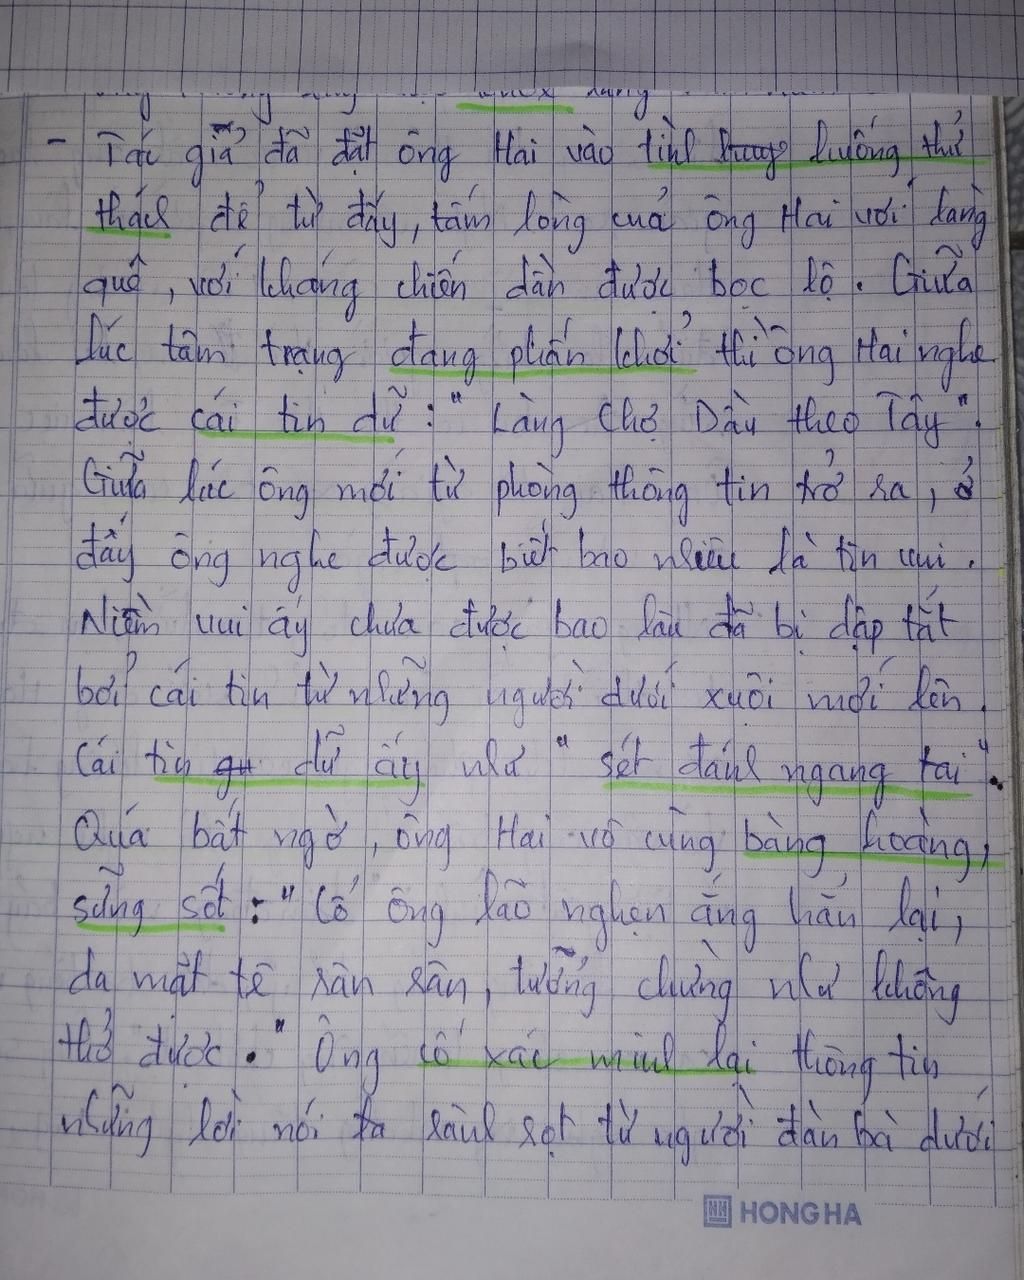 - Tác giả đã đặt ông Hai vào tình huống thử
thách để từ đấy, tấm lòng của ông Hai với làng
quê, với kháng chiến dần được bọc lộ. Giữa
lúc tâm trạng đang phấn khởi thì ông Hai nghe
được cái tin dữ: "Làng Chợ Dầu theo Tây".
Giữa lúc ông mới từ phòng thông tin trở ra, ở
đấy ông nghe được biết bao nhiêu là tin vui.
Niềm vui ấy chưa được bao lâu đã bị dập tắt
bởi cái tin từ những người dưới xuôi mới lên.
Cái tin dữ ấy như "sét đánh ngang tai".
Quá bất ngờ, ông Hai vô cùng bàng hoàng,
sững sốt: "Cổ ông lão nghẹn ắng hẳn lại,
da mặt tê rân rân, tưởng chừng như không
thở được." Ông cố xác minh lại thông tin
những lời nói ra rành rọt từ người đàn bà dưới
HONG HA